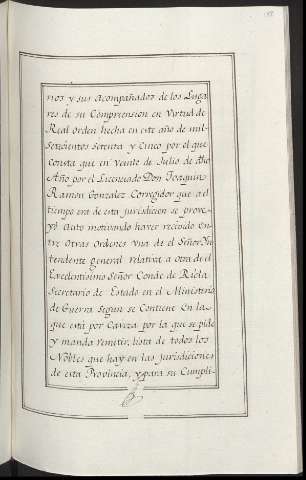 rios y sus Acompañados de los Luga
res de su Comprension en Virtud de
Real orden hecha en este año de mil-
Setecientos Setenta y Cinco por el que
Consta que en Veinte de Julio de dho
Año por el Licenciado Don Joaquin
Ramon Gonzalez Corregidor que a el
tiempo era de esta jurisdicion se prove-
yó Auto motivando haver recivido en-
tre Otras Ordenes Una de el Señor Yn
tendente general relativa a otra de el
Excelentisimo Señor Conde de Ricla
Secretario de Estado en el Ministerio
de Guerra Segun se Contiene en la
que está por Caveza por la que se pide
y manda remitir, lista de todos los
Nobles que hay en las jurisdiciones
de esta Provincia, y para su Cumpli-